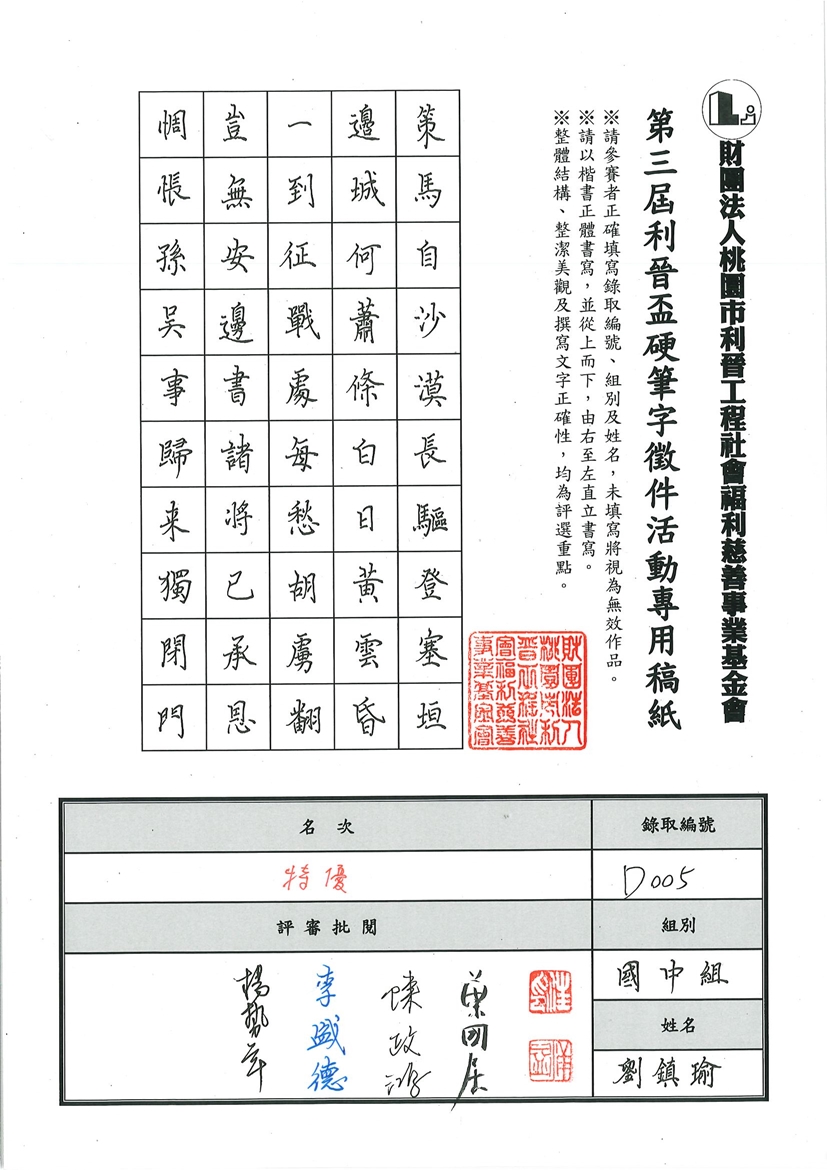 財團法人桃園市利晉工程社會福利慈善事業基金會
第三屆利晉盃硬筆字徵件活動專用稿紙
※請參賽者正確填寫錄取編號、組別及姓名，未填寫將視為無效作品。
※請以楷書正體書寫，並從上而下，由右至左直立書寫。
※整體結構、整潔美觀及撰寫文字正確性，均為評選重點。
財團法人
桃園市利
晉工程社
會福利慈善
事業基金會
策馬自沙漠長驅登塞垣
邊城何蕭條白日黃雲昏
一到征戰處每愁胡虜翻
豈無安邊書諸將已承恩
惆悵孫吳事歸来獨閉門
錄取編號
D005
組別
國中組
姓名
劉鎮瑜
名次
特優
評審批閱
李盛德